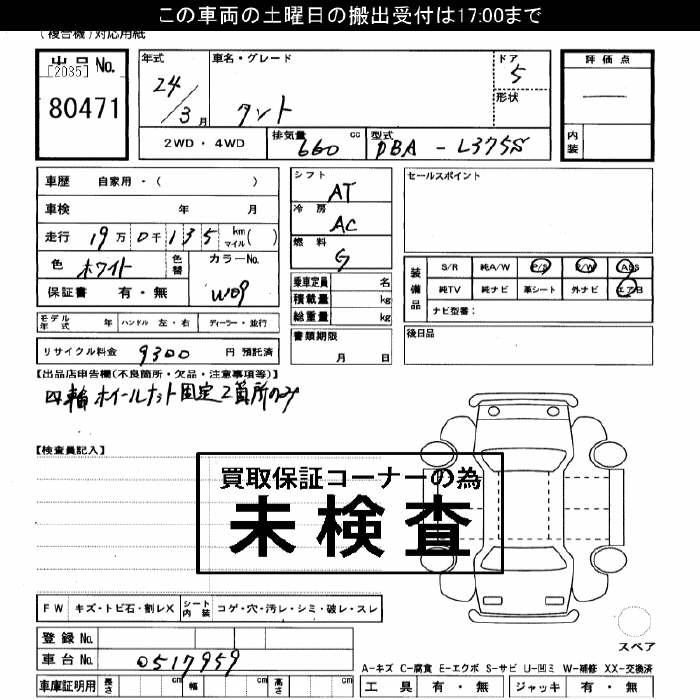 この車両の土曜日の搬出受付は17:00まで
(複合機)対応用紙
出品No.
[2035]
80471
年式
24/3月
車名・グレード
タント
ドア
5
形状
評価点
内装
2WD・4WD
排気量 660 cc
型式 DBA - L375S
車歴 自家用・( )
車検 年 月
走行 19万0千135 km マイル ( )
色 ホワイト 色替
カラーNo. W09
保証書 有・無
シフト AT
冷房 AC
燃料 G
乗車定員 名
積載量 kg
総重量 kg
書類期限
月 日
セールスポイント
装備品
S/R 純A/W P/S P/W ABS
純TV 純ナビ 革シート 外ナビ エアB
ナビ型番:
後日品
モデル年式 年 ハンドル 左・右 ディーラー・並行
リサイクル料金 9300 円 預託済
【出品店申告欄(不良箇所・欠品・注意事項等)】
四輪ホイールナット固定2箇所のみ
【検査員記入】
買取保証コーナーの為
未検査
FW キズ・トビ石・割レX シート内装 コゲ・穴・汚レ・シミ・破レ・スレ
登録No.
車台No. 0517959
車庫証明用 長さ cm 幅 cm 高さ cm
スペア
A-キズ C-腐食 E-エクボ S-サビ U-凹ミ W-補修 XX-交換済
工具 有・無 ジャッキ 有・無